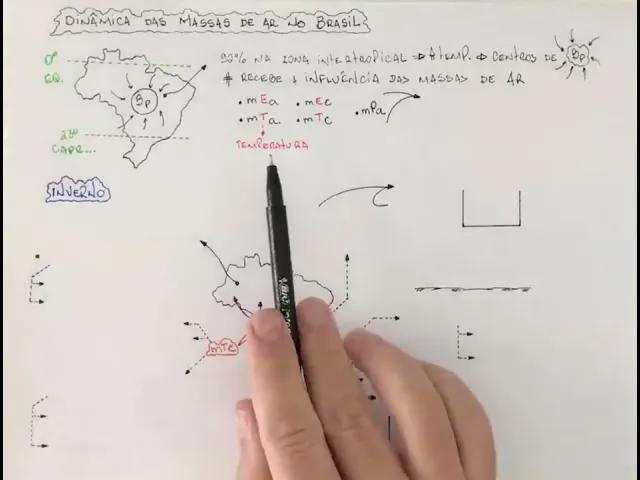 DINÂMICA DAS MASSAS DE AR NO BRASIL
92% NA ZONA INTERTROPICAL ⇒ ↑ TEMP. ⇒ CENTROS DE Bp
# RECEBE A INFLUÊNCIA DAS MASSAS DE AR
0°
EQ.
Bp
• mEa • mEc
• mTa • mTc
• mPa
23°
CAPR...
TEMPERATURA
INVERNO
mTc